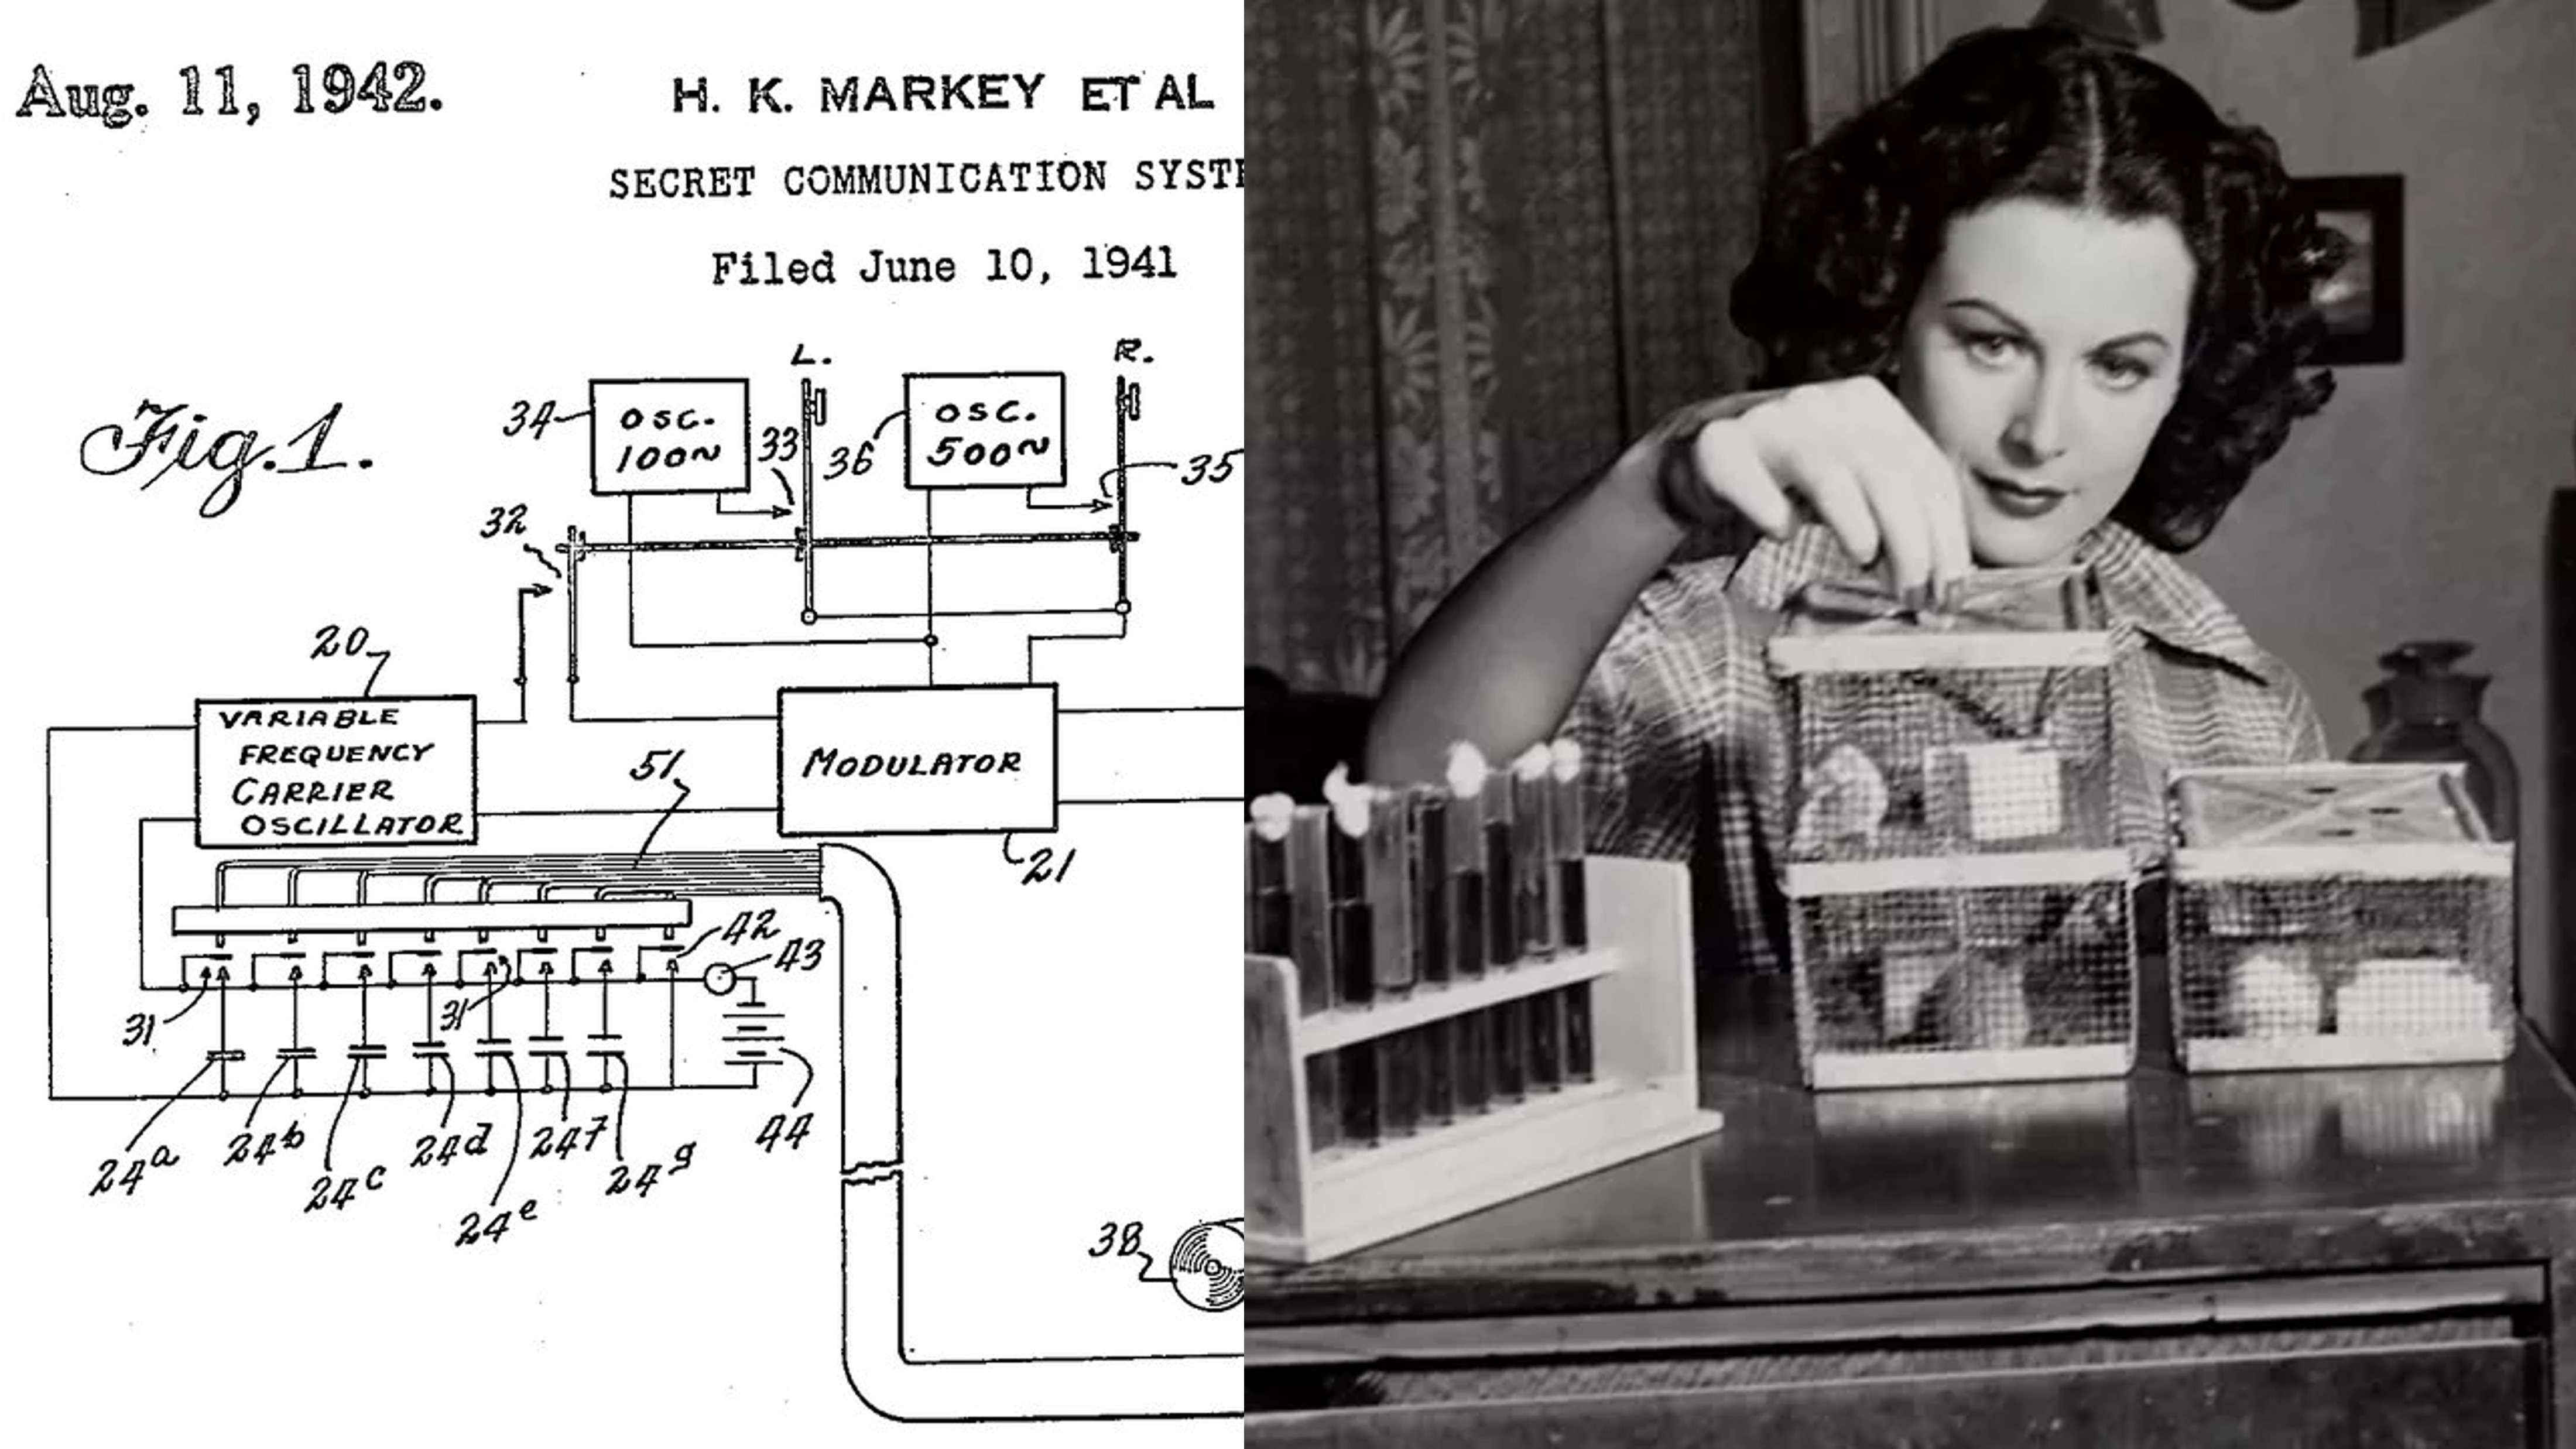 Aug. 11, 1942.
H. K. MARKEY ET AL
SECRET COMMUNICATION
Filed June 10, 1941
Fig.1.
L.
R.
34
OSC.
100~
33
36
OSC.
500~
35
32
20
VARIABLE
FREQUENCY
CARRIER
OSCILLATOR
51
MODULATOR
21
42
43
31
31
44
24a
24b
24c
24d
24e
24f
24g
38